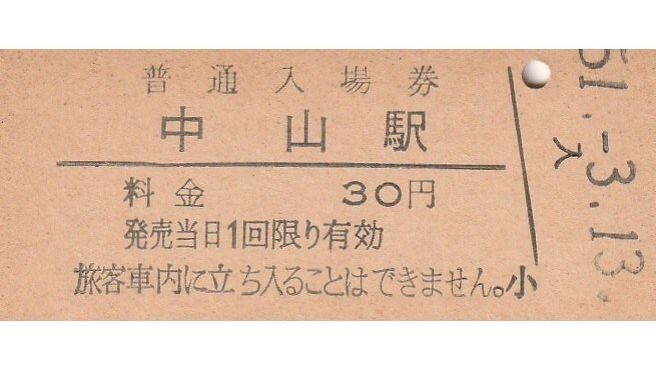 普通入場券
中山駅
料金 30円
発売当日1回限り有効
旅客車内に立ち入ることはできません。小
入
51.-3.13.